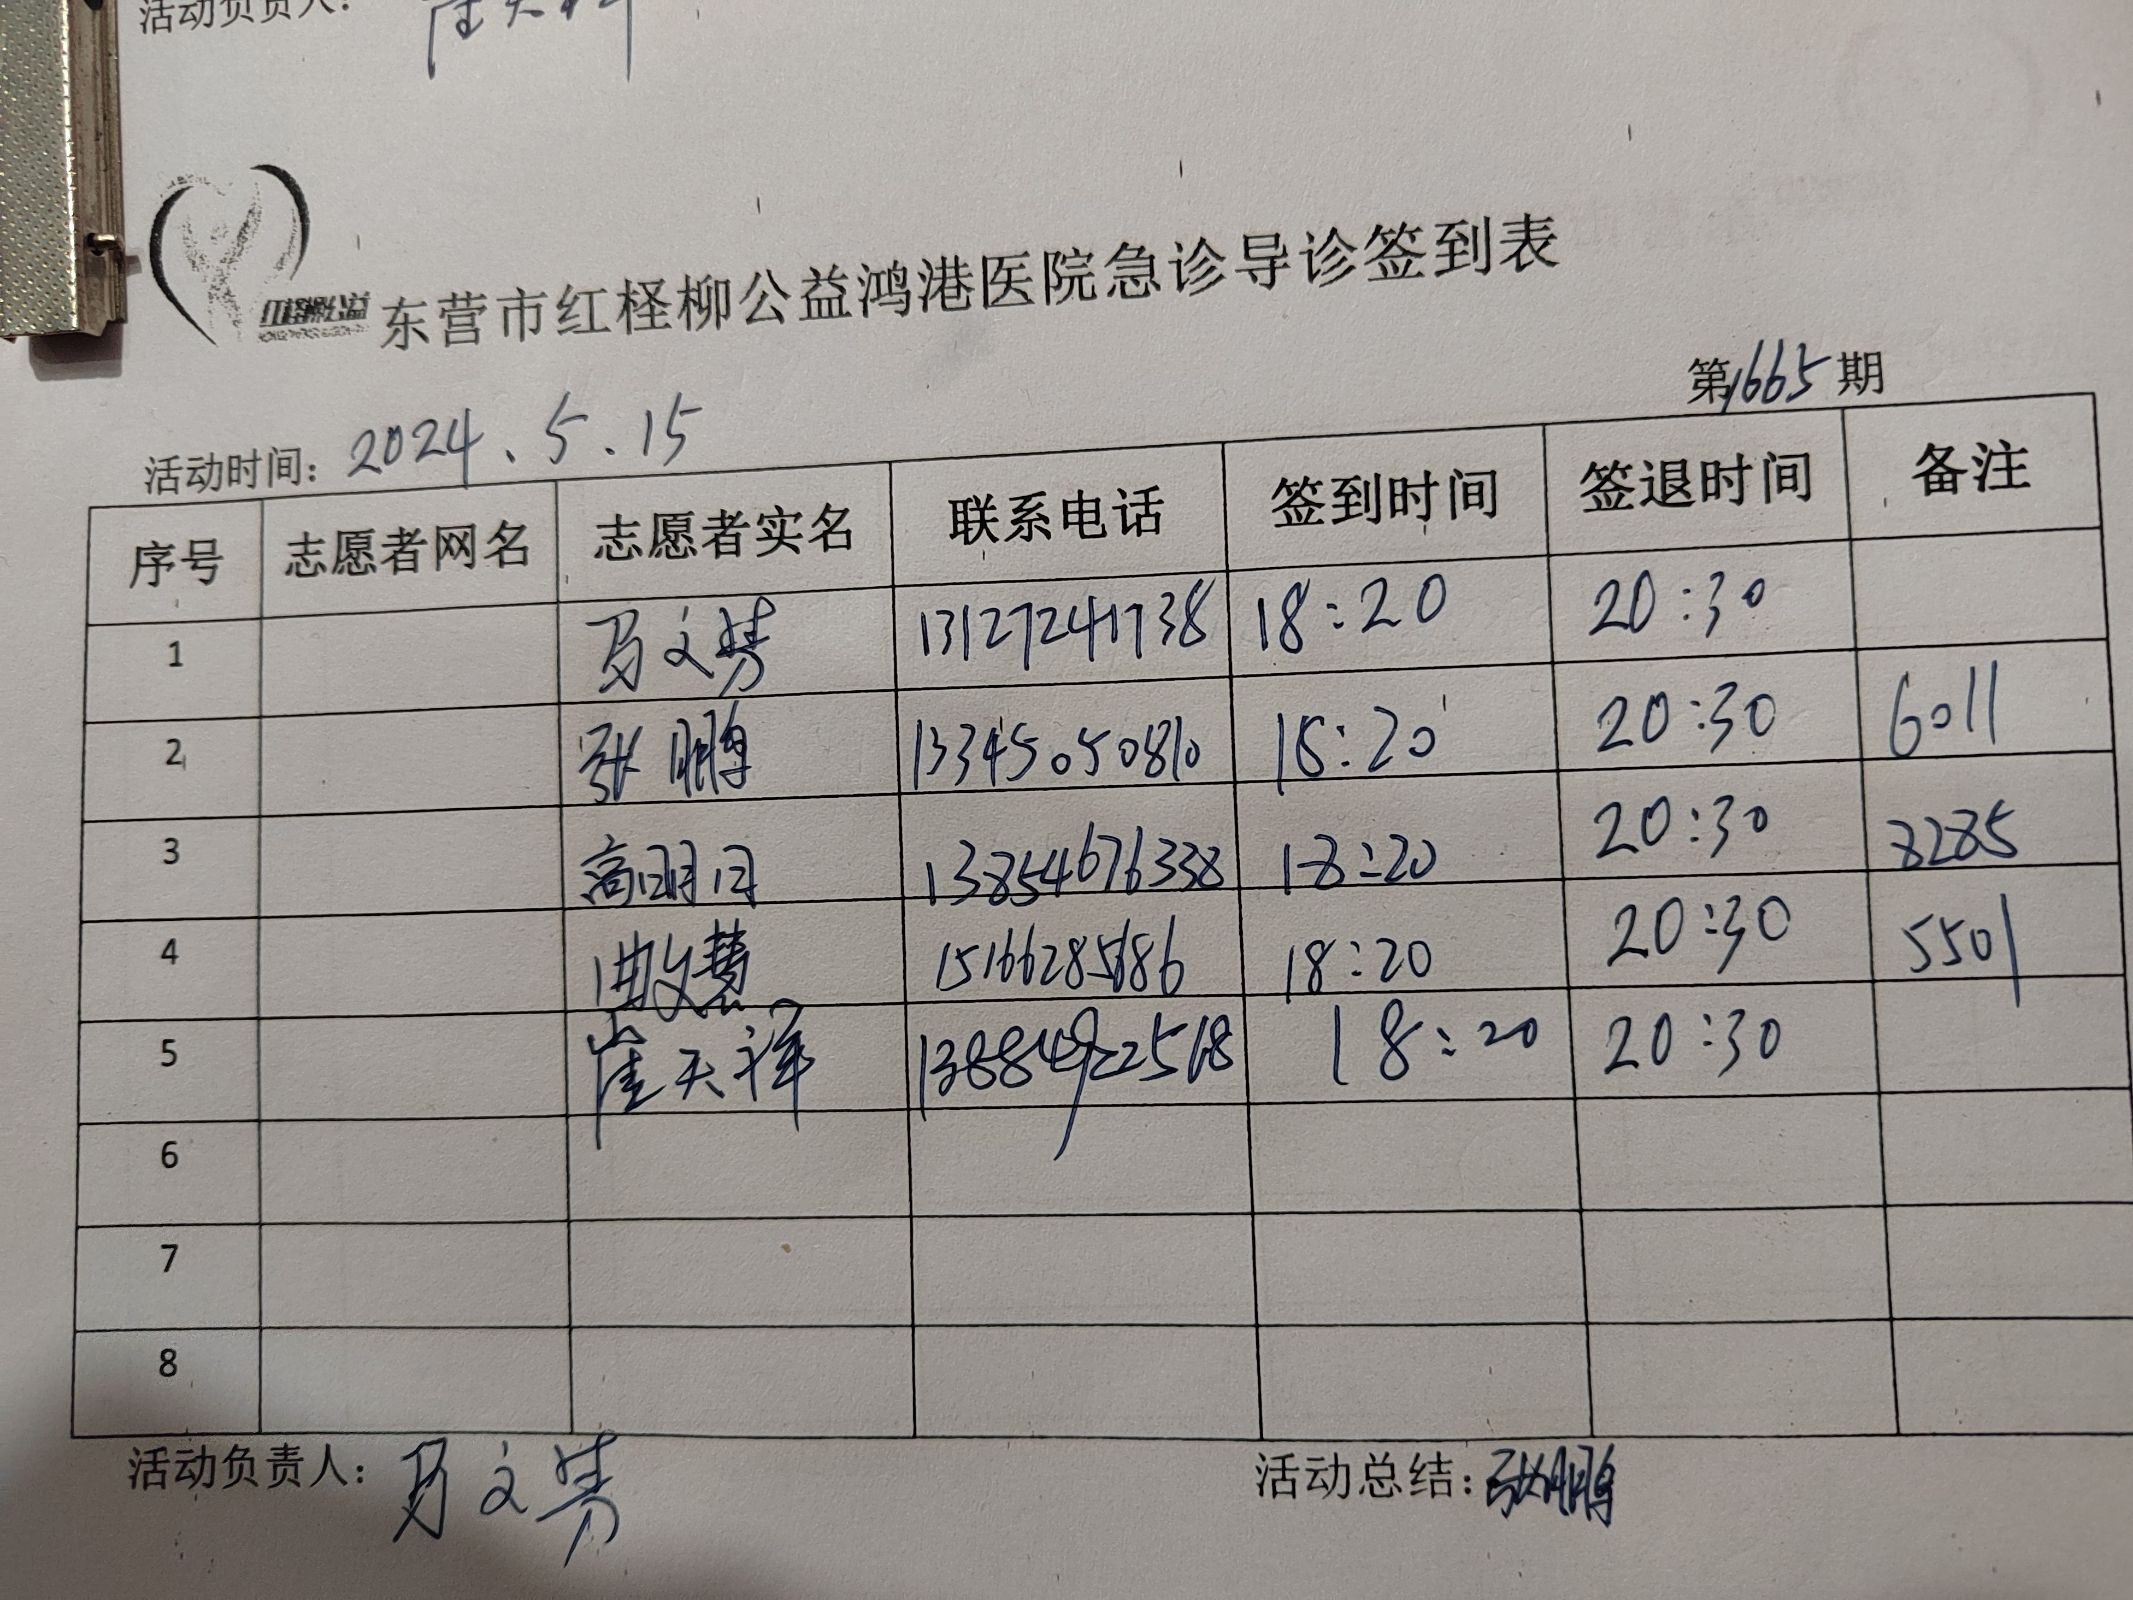 活动负责人:
东营市红柽柳公益鸿港医院急诊导诊签到表
第1665期
活动时间: 2024.5.15
序号 志愿者网名 志愿者实名 联系电话 签到时间 签退时间 备注
1 13127241738 18:20 20:30
2 张鹏 13345050810 18:20 20:30 6011
3 高明月 13854676338 18:20 20:30 8285
4 曲文慧 15166285686 18:20 20:30 5501
5 崔天祥 13884922518 18:20 20:30
6
7
8
活动负责人:
活动总结: 张鹏